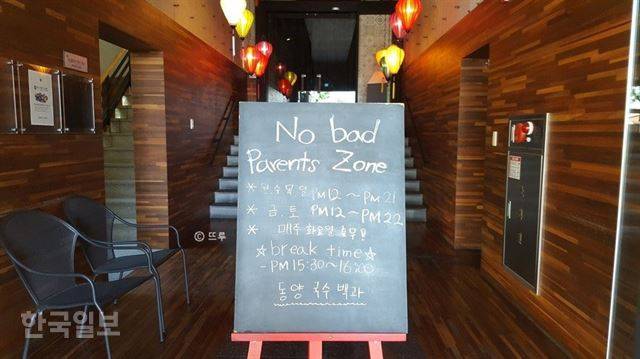 No bad
Parents Zone
* 월수목일 PM12~PM21
* 금.토 PM12~PM22
* 매주 화요일 휴무!
☆break time☆
-PM15:30~16:00
동양 국수 백과
© 뜨루
한국일보